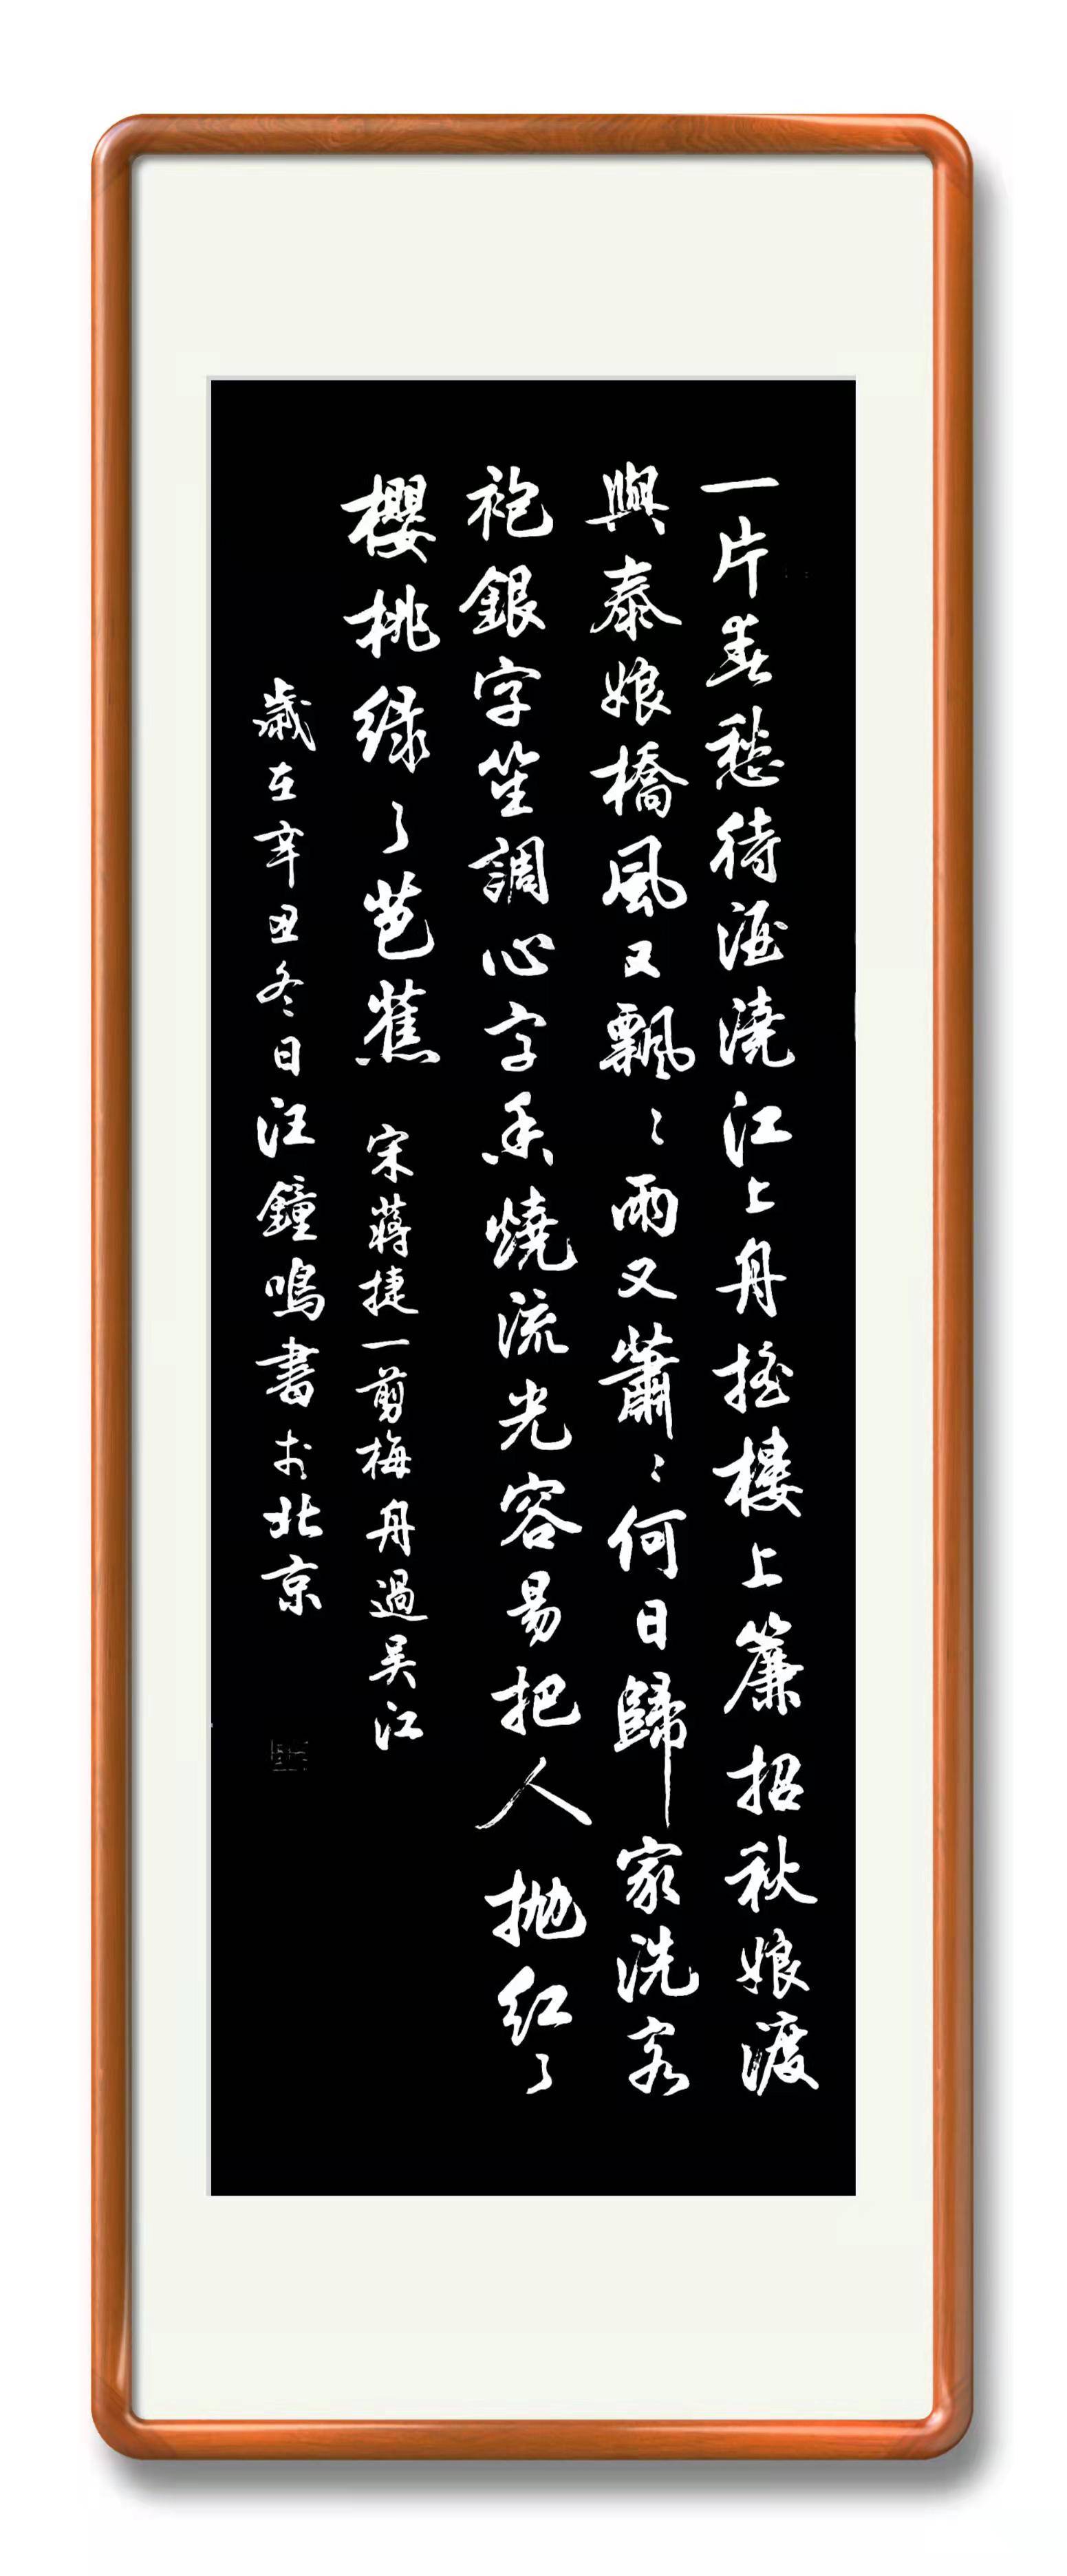 一片春愁待酒澆江上舟摇樓上簾招秋娘渡
與泰娘橋風又飄〻雨又蕭〻何日歸家洗客
袍銀字笙調心字香燒流光容易把人抛红了
櫻桃绿了芭蕉 宋蔣捷一剪梅舟過吴江
歲在辛丑冬日汪鐘鳴書於北京